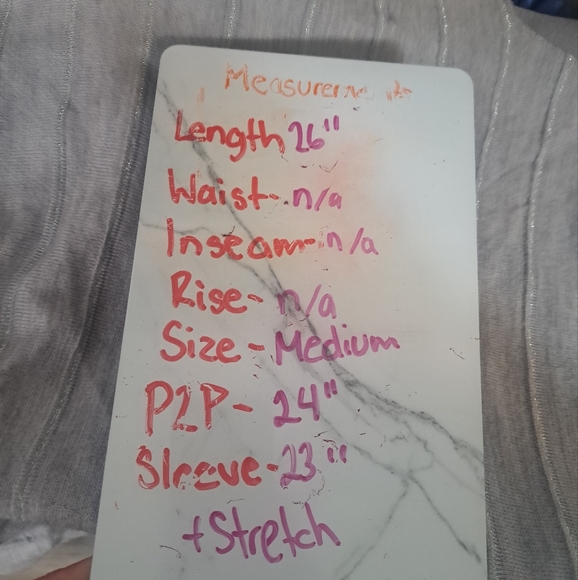 Measurements
Length 26"
Waist- n/a
Inseam- n/a
Rise- n/a
Size- Medium
P2P- 24"
Sleeve- 23"
+ Stretch